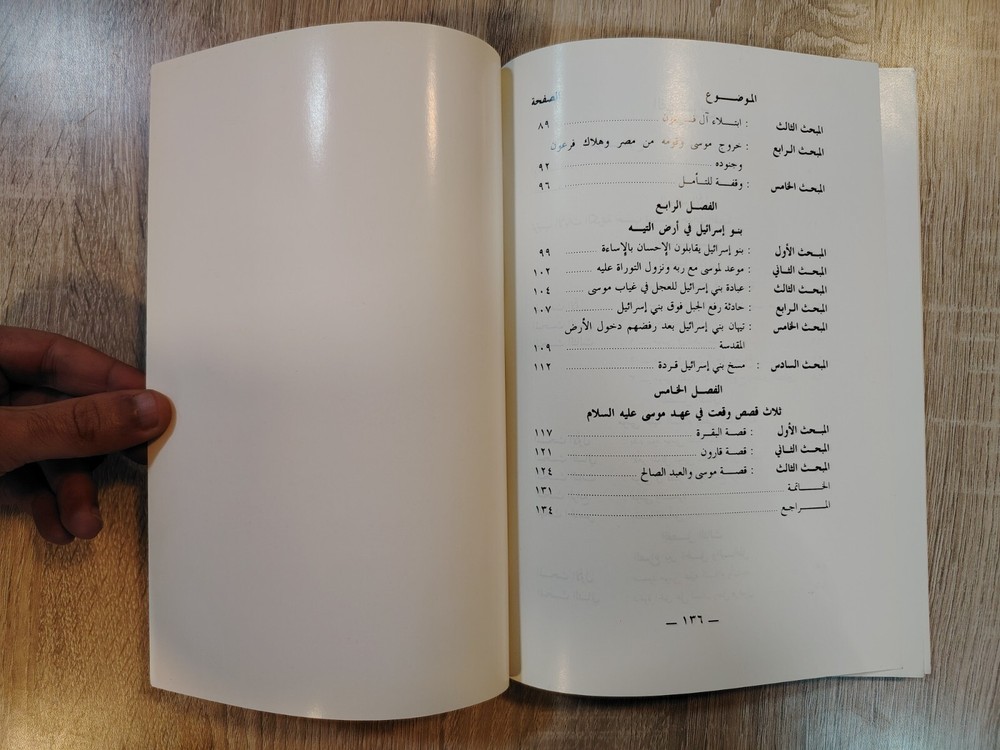 الموضــوع الصفحة
المبحث الثالث : ابتلاء آل فرعون ........ ٨٩
المبحث الرابع : خروج موسى وقومه من مصر وهلاك فرعون
وجنوده ........ ٩٢
المبحث الخامس : وقفة للتأمل ........ ٩٦
الفصل الرابع
بنو إسرائيل في أرض التيه
المبحث الأول : بنو إسرائيل يقابلون الإحسان بالإساءة ........ ٩٩
المبحث الثاني : موعد لموسى مع ربه ونزول التوراة عليه ........ ١٠٢
المبحث الثالث : عبادة بني إسرائيل للعجل في غياب موسى ........ ١٠٤
المبحث الرابع : حادثة رفع الجبل فوق بني إسرائيل ........ ١٠٧
المبحث الخامس : تيهان بني إسرائيل بعد رفضهم دخول الأرض
المقدسة ........ ١٠٩
المبحث السادس : مسخ بني إسرائيل قردة ........ ١١٢
الفصل الخامس
ثلاث قصص وقعت في عهد موسى عليه السلام
المبحث الأول : قصة البقرة ........ ١١٧
المبحث الثاني : قصة قارون ........ ١٢١
المبحث الثالث : قصة موسى والعبد الصالح ........ ١٢٤
الخــاتمة ........ ١٣١
المــراجع ........ ١٣٤
— ١٣٦ —